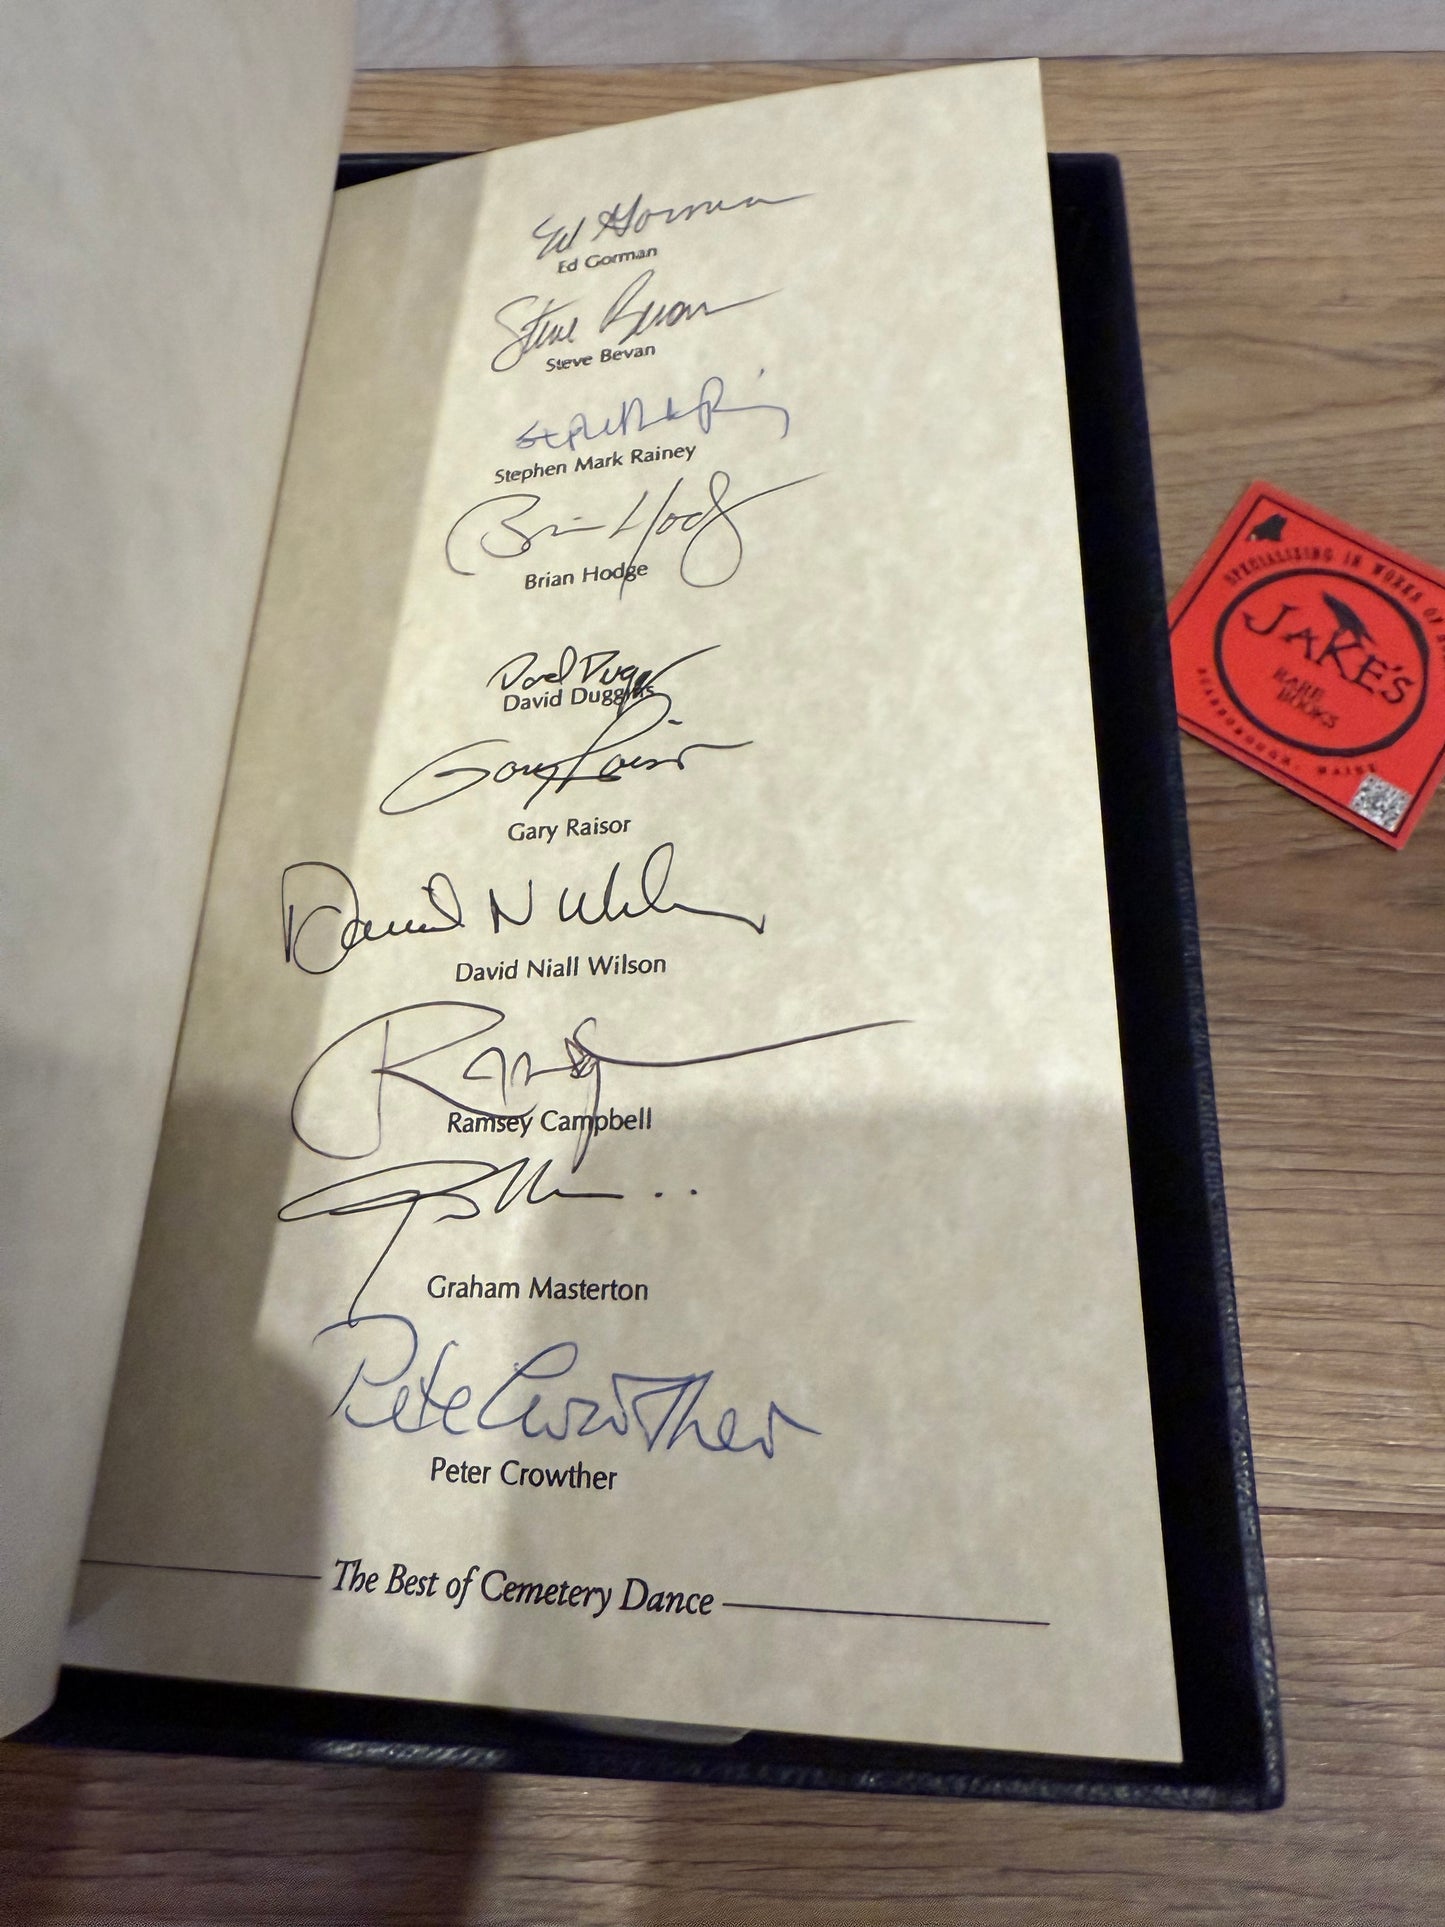 Ed Gorman
Ed Gorman
Steve Bevan
Steve Bevan
Stephen Mark Rainey
Brian Hodge
Brian Hodge
David Duggins
Gary Raisor
Gary Raisor
David N Wilson
David Niall Wilson
Ramsey Campbell
Graham Masterton
Pete Crowther
Peter Crowther
The Best of Cemetery Dance
SPECIALIZING IN WORKS OF
JAKE'S
RARE
BOOKS
SCARBOROUGH, MAINE